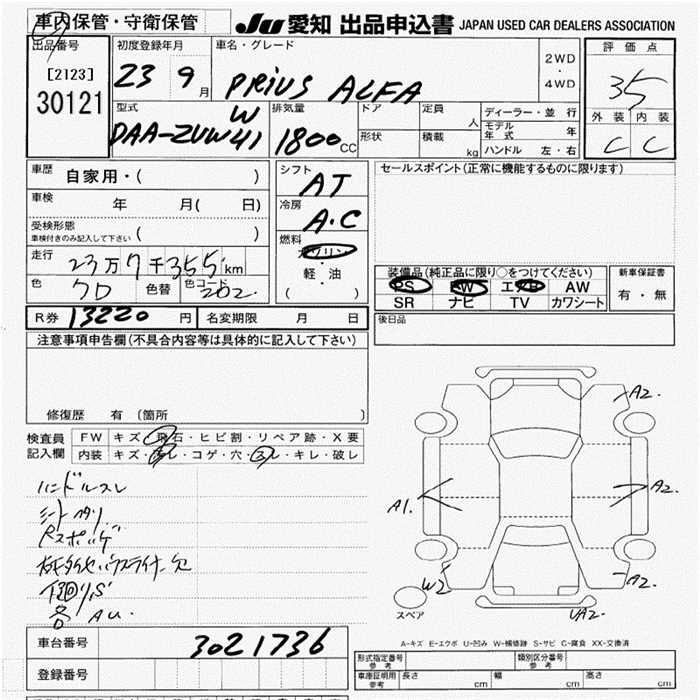 車内保管・守衛保管
Ju 愛知 出品申込書 JAPAN USED CAR DEALERS ASSOCIATION
出品番号
[2123]
30121
初度登録年月
23 9月
車名・グレード
PRiUS ALFA
2WD
・
4WD
評価点
35
外装 内装
C C
型式
DAA-ZVW41
W
排気量
1800CC
ドア
形状
定員
人
積載
kg
ディーラー・並行
モデル年式 年
ハンドル 左・右
車歴 自家用・( )
車検 年 月( 日)
受検形態
車検付きのみ記入して下さい ( )
走行 23万7千355km
色 クロ 色替 色コード 202
R券 13220円 名変期限 月 日
シフト
AT
冷房
A.C
燃料
ガソリン
軽・油
( )
セールスポイント(正常に機能するものに限ります)
装備品(純正品に限り○をつけてください)
PS PW エアB AW
SR ナビ TV カワシート
新車保証書
有・無
後日品
注意事項申告欄(不具合内容等は具体的に記入して下さい)
修復歴 有 〔箇所 〕
検査員
記入欄
FW キズ・飛石・ヒビ割・リペア跡・X要
内装 キズ・汚レ・コゲ・穴・スレ・キレ・破レ
ハンドルスレ
各AU.
A2.
A1.
A2.
W2
A2.
UA2.
スペア
A-キズ E-エクボ U-凹み W-補修跡 S-サビ C-腐食 XX-交換済
車台番号 3021736
登録番号
形式指定番号
参考
類別区分番号
参考
車庫証明用
参考
長さ cm 幅 cm 高さ cm